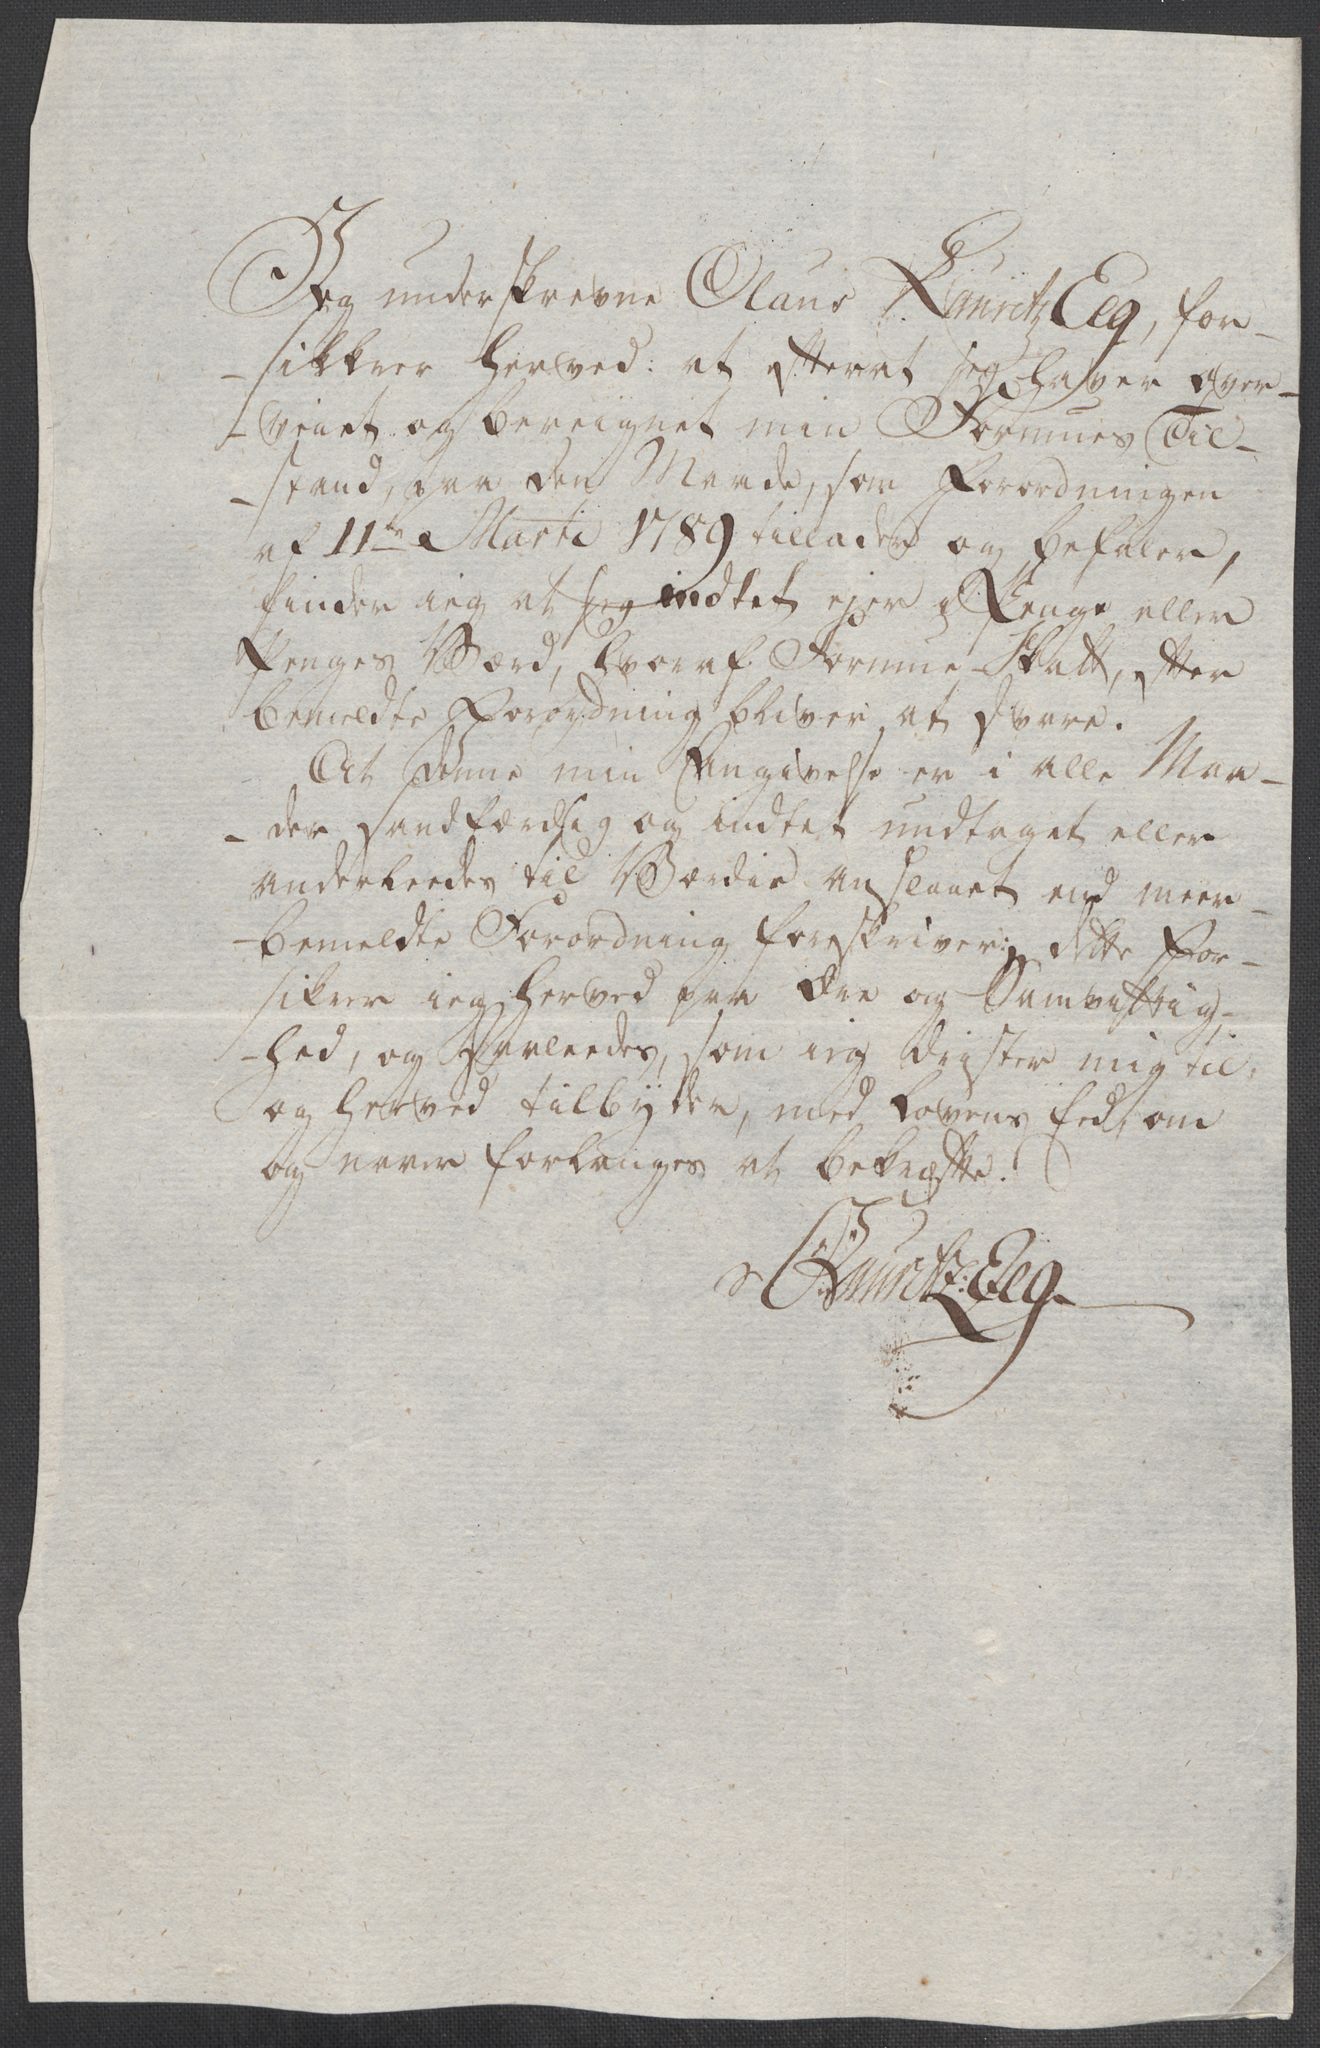 Jeg underskrevne Olaus Lauritz Eeg, for-
-sikkrer herved: at efterat jeg haver over-
-veiet og bereignet min Formues Til-
-stand, paa den Maade, som Forordningen
af 11te Marti 1789 tillader og befaler,
finder ieg at jeg indtet ejer i Penge eller
Penges Værd, hvoraf Formue-Skatt, efter
bemeldte Forordning bliver at svare.
At denne min Angivelse er i alle Maa-
-der sandfærdig og indtet undtaget eller
anderleedes til Værdie anslaaet end meer-
-bemeldte Forordning foreskriver; dette for-
sikrer ieg herved paa Ære og Samvittig-
-hed, og saaleedes, som ieg drister mig til,
og herved tilbyder, med Lovens Eed, om
og naar forlanges at bekræfte.
O Lauritz: Eeg